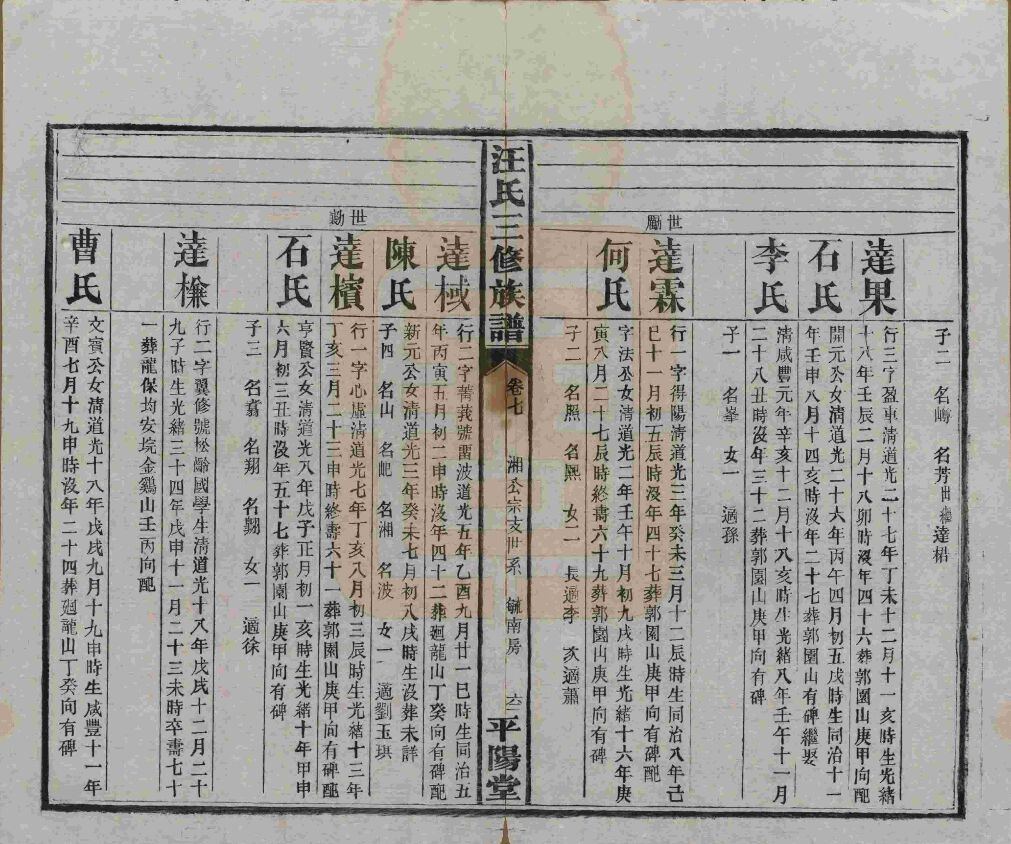 子二 名㟽 名芳 世繼達榙
達果
行三字盈車清道光二十七年丁未十二月十一亥時生光緒
十八年壬辰二月十八卯時沒年四十六葬郭園山庚甲向配
石氏
開元公女清道光二十六年丙午四月初五戌時生同治十一
年壬申八月十四亥時沒年二十七葬郭園山有碑繼娶
李氏
清咸豐元年辛亥十二月十八亥時生光緒八年壬午十一月
二十八丑時沒年三十二葬郭園山庚甲向有碑
子一 名峯 女一 適孫
世勵
達霖
行一字得陽清道光三年癸未三月十二辰時生同治八年己
巳十一月初五辰時沒年四十七葬郭園山庚甲向有碑配
何氏
字法公女清道光二年壬午十月初九戌時生光緒十六年庚
寅八月二十七辰時終壽六十九葬郭園山庚甲向有碑
子二 名照 名熙 女二 長適李 次適蕭
汪氏三修族譜 卷七 湘公宗支世系 毓南房 六二 平陽堂
達棫
行二字菁莪號霤波道光五年乙酉九月廿一巳時生同治五
年丙寅五月初二申時沒年四十二葬廻龍山丁癸向有碑配
陳氏
新元公女清道光三年癸未七月初八戌時生沒葬未詳
子四 名山 名岷 名湘 名波 女一 適劉玉琪
世勱
達檳
行一字心虛清道光七年丁亥八月初三辰時生光緒十三年
丁亥三月二十三申時終壽六十一葬郭園山庚甲向有碑配
石氏
亨賢公女清道光八年戊子正月初一亥時生光緒十年甲申
六月初三丑時沒年五十七葬郭園山庚甲向有碑
子三 名翥 名翔 名翾 女一 適徐
達槺
行二字翼修號松齡國學生清道光十八年戊戌十二月二十
九子時生光緒三十四年戊申十一月二十三未時卒壽七十
一葬龍保均安垸金鷄山壬丙向配
曹氏
文賓公女清道光十八年戊戌九月十九申時生咸豐十一年
辛酉七月十九申時沒年二十四葬廻龍山丁癸向有碑